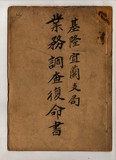 基隆宜蘭支局
業務調查復命書